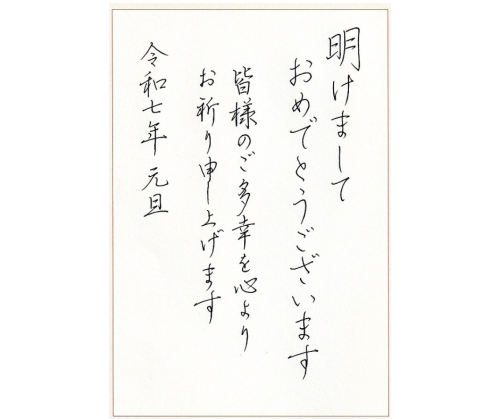 明けまして
おめでとうございます
皆様のご多幸を心より
お祈り申し上げます
令和七年 元旦